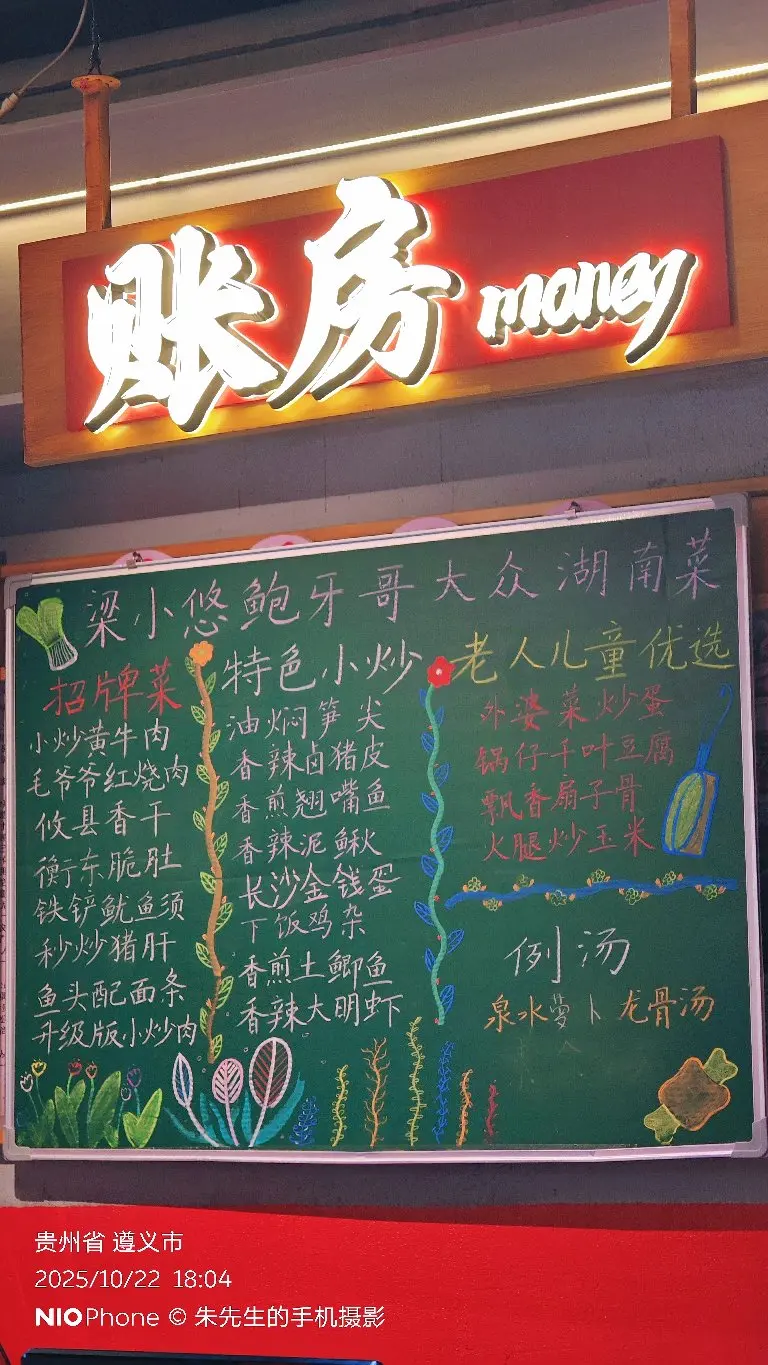 账房 money
梁小悠鲍牙哥大众湖南菜
招牌菜
小炒黄牛肉
毛爷爷红烧肉
攸县香干
衡东脆肚
铁铲鱿鱼须
秒炒猪肝
鱼头配面条
升级版小炒肉
特色小炒
油焖笋尖
香辣卤猪皮
香煎翘嘴鱼
香辣泥鳅
长沙金钱蛋
下饭鸡杂
香煎土鲫鱼
香辣大明虾
老人儿童优选
外婆菜炒蛋
锅仔千叶豆腐
飘香扇子骨
火腿炒玉米
例汤
泉水萝卜龙骨汤
贵州省 遵义市
2025/10/22 18:04
NIO Phone © 朱先生的手机摄影